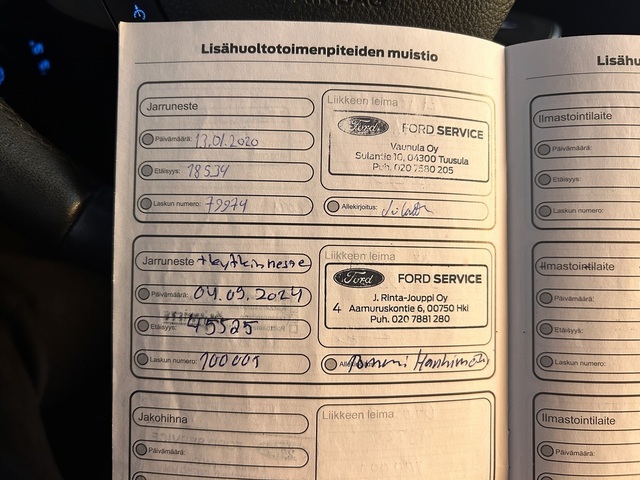 Lisähuoltotoimenpiteiden muistio
Jarruneste
Päivämäärä: 13.01.2020
Etäisyys: 18534
Laskun numero: 79974
Liikkeen leima
Ford FORD SERVICE
Vaunula Oy
Sulantie 10, 04300 Tuusula
Puh. 020 7580 205
Allekirjoitus:
Jarruneste + kytkinneste
Päivämäärä: 04.09.2024
Etäisyys: 45525
Laskun numero: 100001
Liikkeen leima
Ford FORD SERVICE
J. Rinta-Jouppi Oy
4 Aamuruskontie 6, 00750 Hki
Puh. 020 7881 280
Tommi
Jakohihna
Päivämäärä:
Liikkeen leima
Lisähu
Ilmastointilaite
Päivämäärä:
Etäisyys:
Laskun numero:
Ilmastointilaite
Päivämäärä:
Etäisyys:
Laskun numero:
Ilmastointilaite
Päivämäärä: